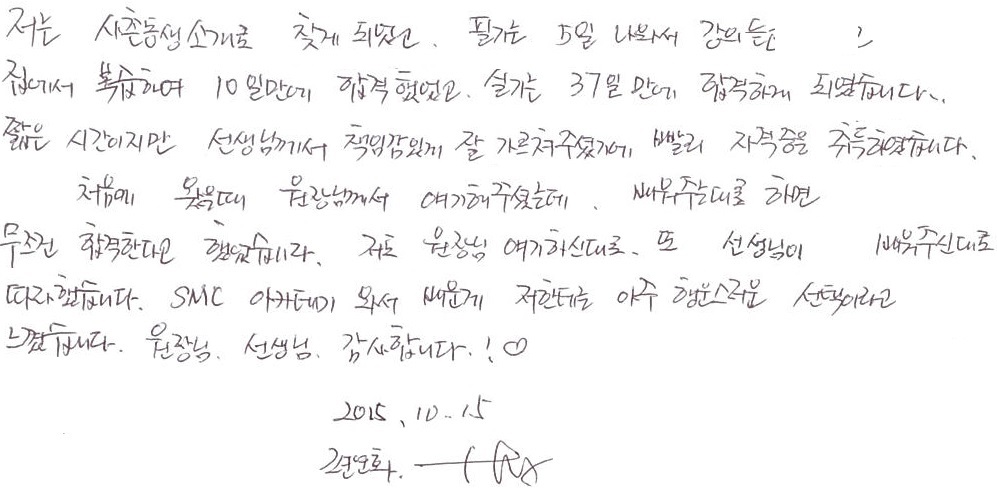 저는 사촌동생소개로 찾게 되었고. 필기는 5일 나와서 강의듣고
집에서 복습하여 10일만에 합격했었고. 실기는 37일 만에 합격하게 되였습니다.
짧은 시간이지만 선생님께서 책임감있게 잘 가르쳐주셨기에 빨리 자격증을 취득하였습니다.
처음에 왔을때 원장님께서 얘기해주셨는데. 배워주는대로 하면
무조건 합격한다고 했었습니다. 저는 원장님 얘기하신대로. 또 선생님이 배워주신대로
따라했습니다. SMC 아카데미 와서 배운게 저한테는 아주 행운스러운 선택이라고
느꼈습니다. 원장님. 선생님. 감사합니다.!♡
2015. 10. 15